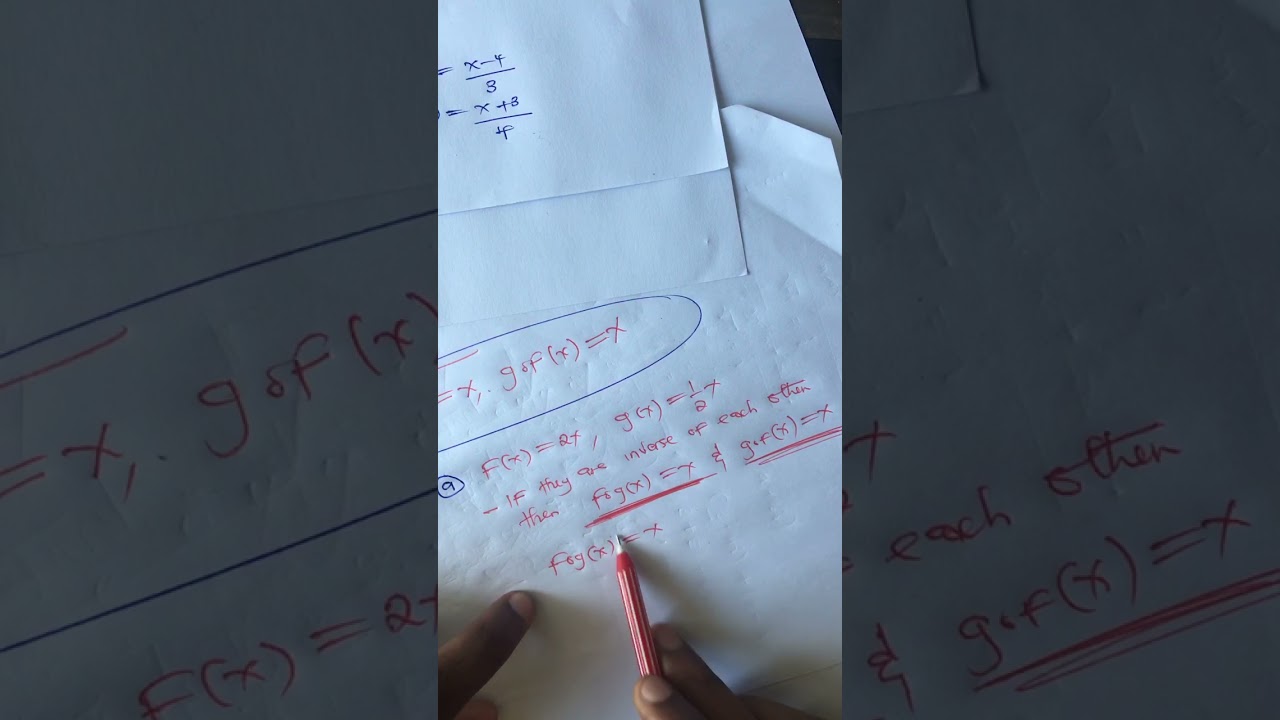 = x-4/3
= x+3/4
= x, gof(x) = x
(a) f(x) = 2x, g(x) = 1/2 x
- If they are inverse of each other
then fog(x) = x & gof(x) = x
fog(x) = x